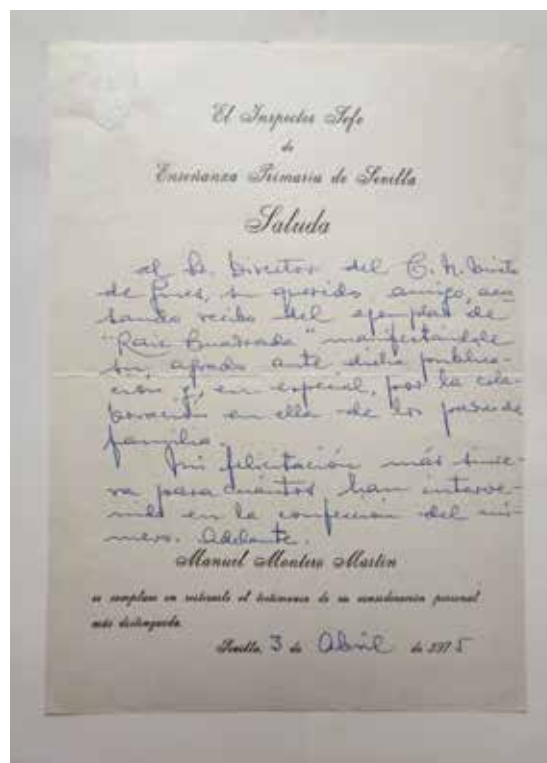 El Inspector Jefe
de
Enseñanza Primaria de Sevilla
Saluda
al Sr. Director del C. N. Mixto
de Lines, su querido amigo, acu
sando recibo del ejemplar de
"Raiz Cuadrada" manifestándole
su agrado ante dicha publica-
ción y, en especial, por la cola-
boración en ella de los padres de
familia.
Mi felicitación más since-
ra para cuantos han interve-
nido en la confección del nú-
mero. Adelante.
Manuel Montero Martín
se complace en reiterarle el testimonio de su consideración personal
más distinguida.
Sevilla, 3 de Abril de 1975